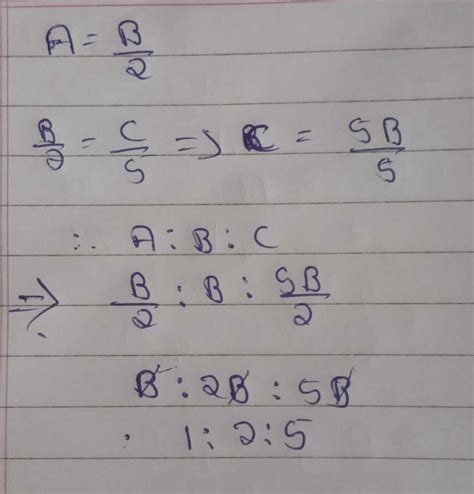 A = B/2
B/2 = C/5 => C = 5B/5
∴ A : B : C
=> B/2 : B : 5B/2
B : 2B : 5B
1 : 2 : 5